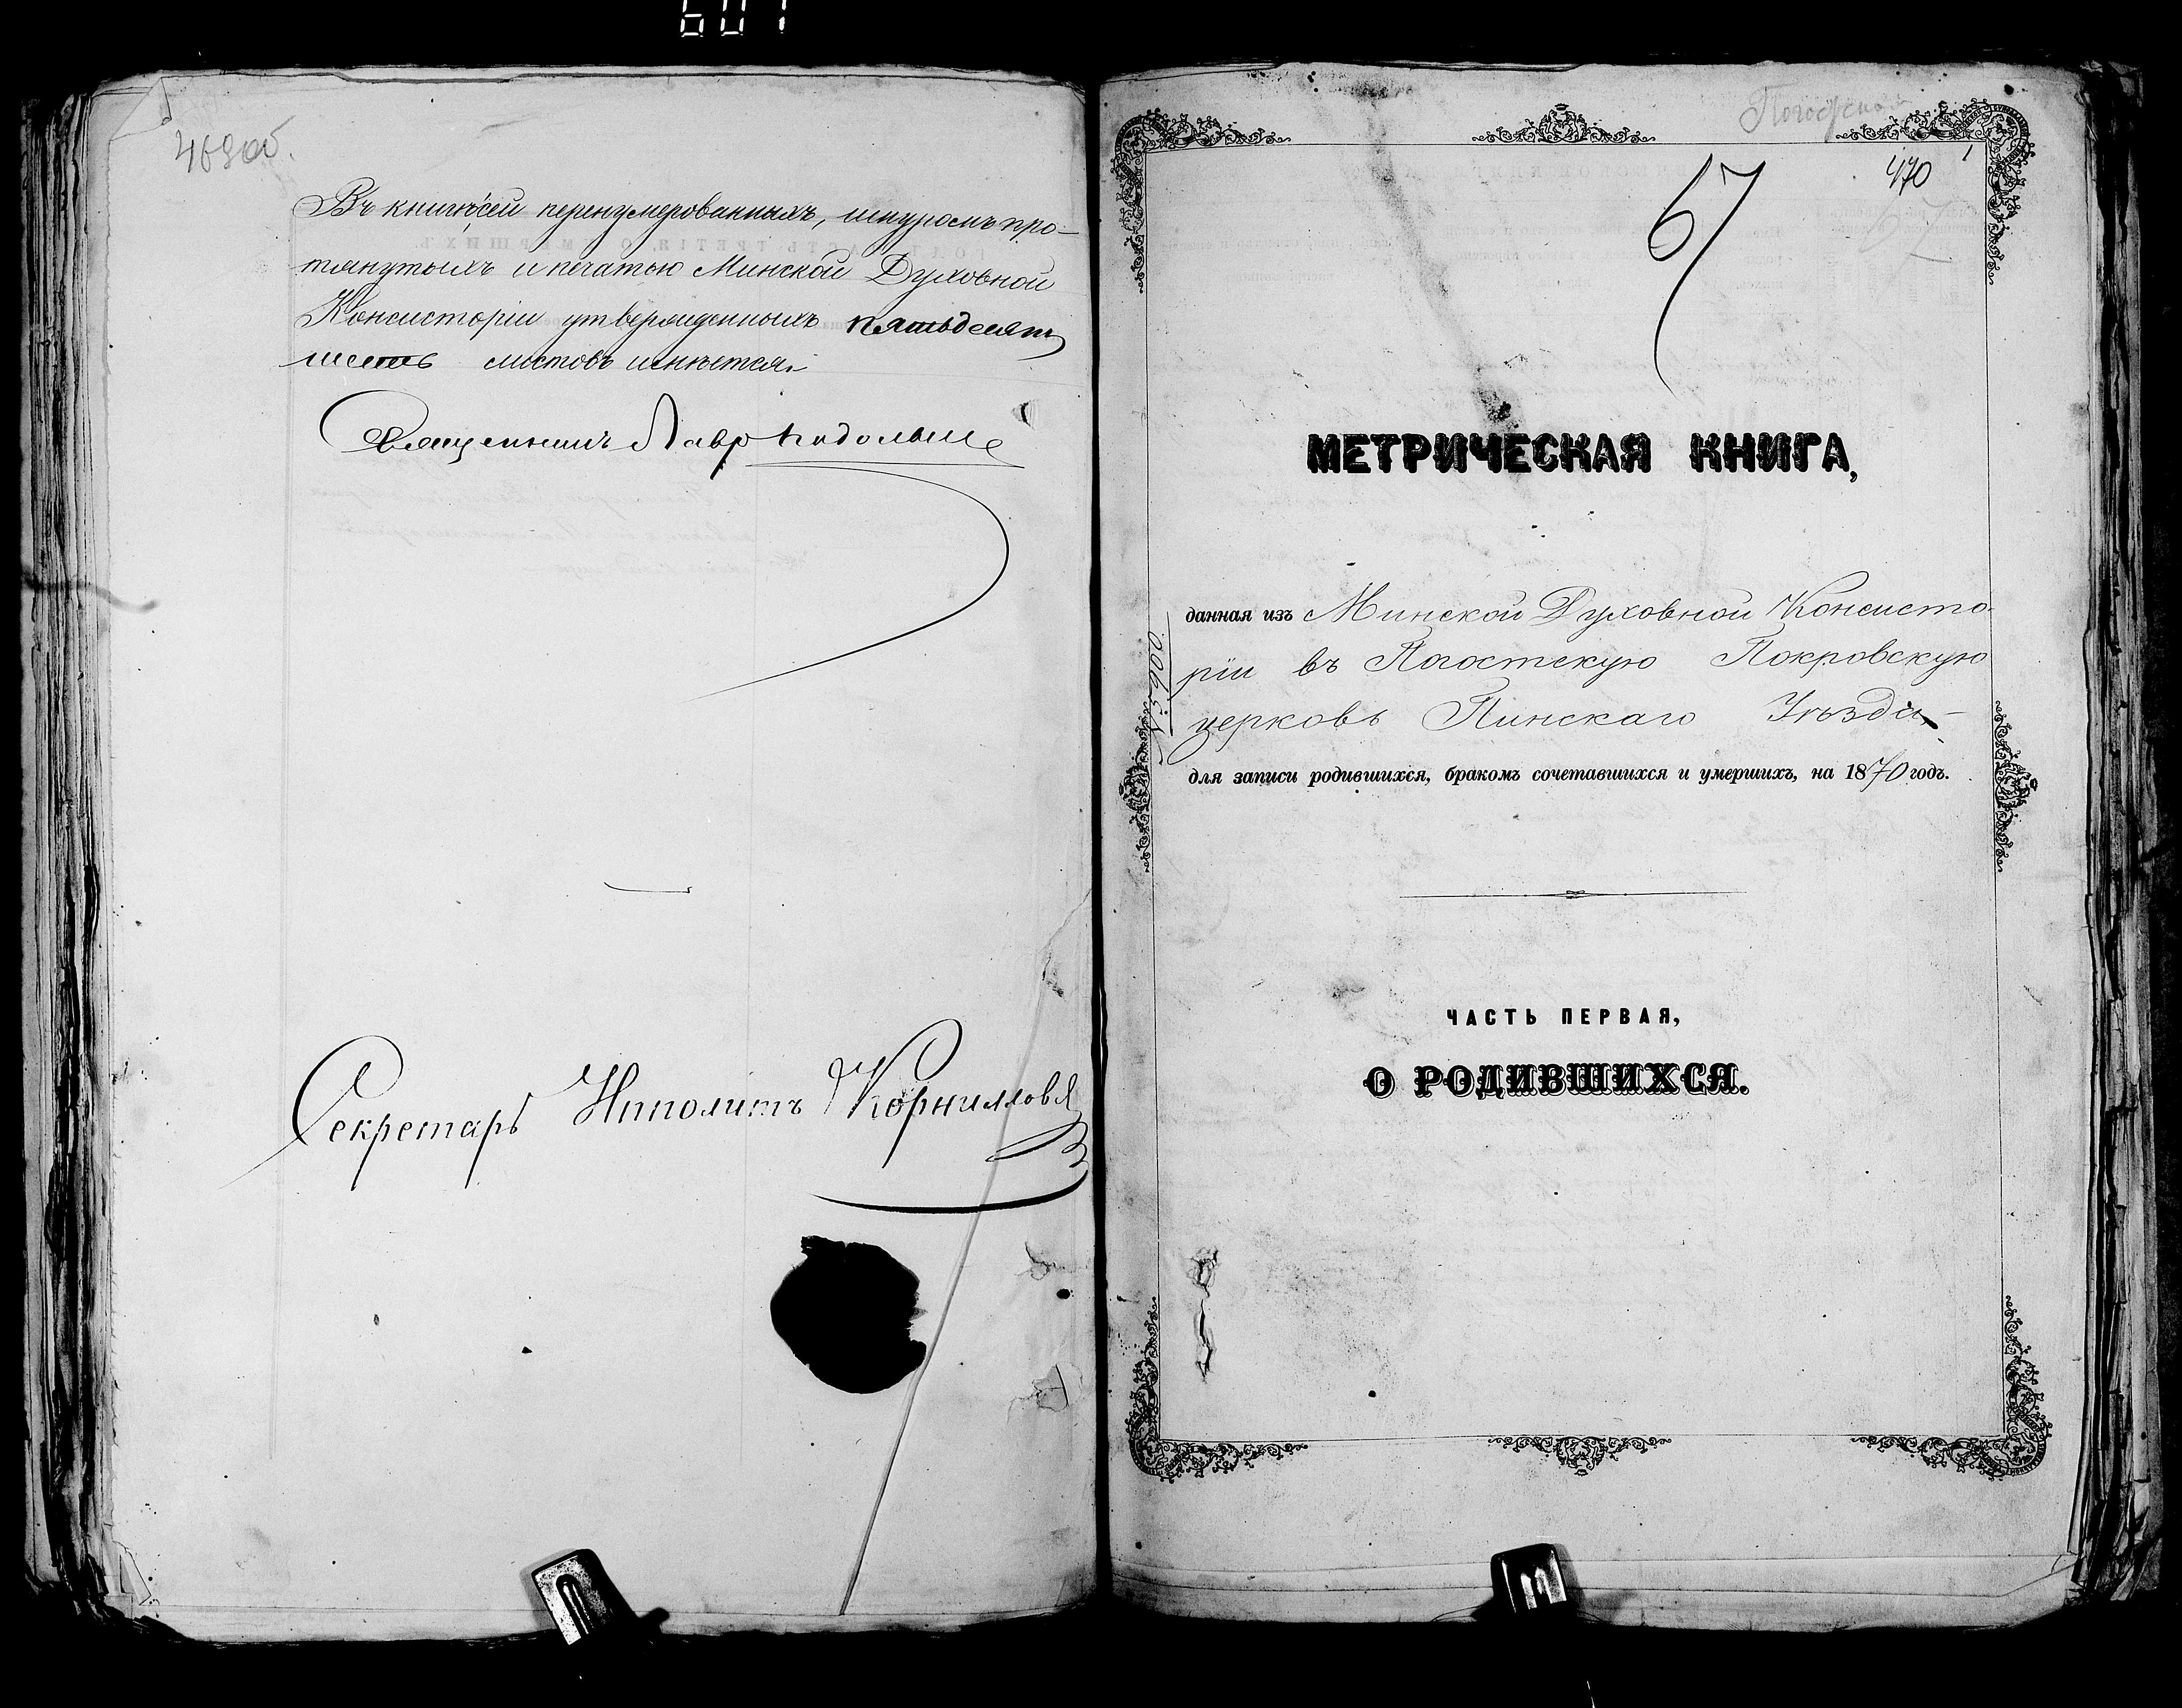 469об.
Въ книгѣ сей перенумерованныхъ, шнуромъ про-
тянутыхъ и печатью Минской Духовной
Консисторіи утвержденныхъ пятьдесятъ
шесть листовъ имѣется.
Священникъ Лавр
Секретарь Ипполитъ Корниловъ
Погостская
470 1
67
57
МЕТРИЧЕСКАЯ КНИГА,
данная изъ Минской Духовной Консисто-
ріи въ Погостскую Покровскую
церковь Пинскаго Уѣзда
для записи родившихся, бракомъ сочетавшихся и умершихъ, на 1870 годъ.
ЧАСТЬ ПЕРВАЯ,
О РОДИВШИХСЯ.